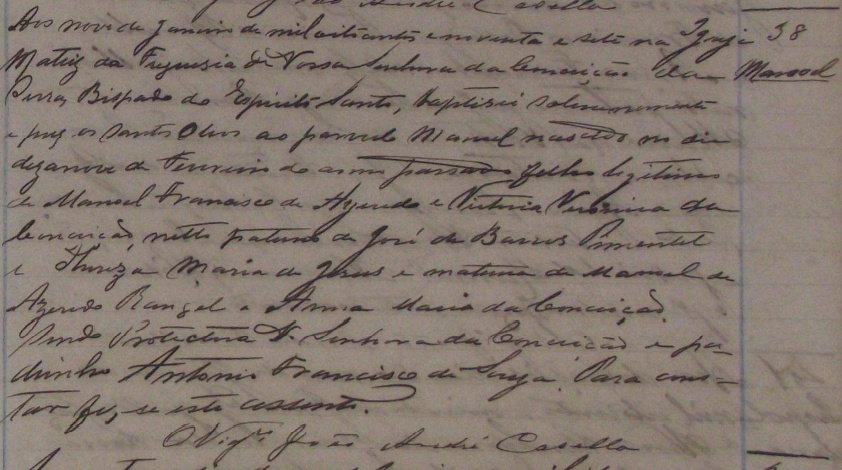 João André Casella
Aos nove de Janeiro de mil oitocentos e noventa e sete na Igreja 38
Matriz da Freguesia de Nossa Senhora da Conceição da Manoel
Serra, Bispado do Espirito Santo, baptisei solemnemente
e puz os Santos Oleos ao parvulo Manoel nascido no dia
dezanove de Fevereiro do anno passado filho legitimo
de Manoel Francisco de Azeredo e Victoria Veronica da
Conceição, netto paterno de José de Barros Pimentel
e Thereza Maria de Jesus e materno de Manoel de
Azeredo Rangel e Anna Maria da Conceição
sendo Protectora N. Senhora da Conceição e pa-
drinho Antonio Francisco de Souza. Para cons-
tar fez-se este assento.
O Vigrº João André Casella